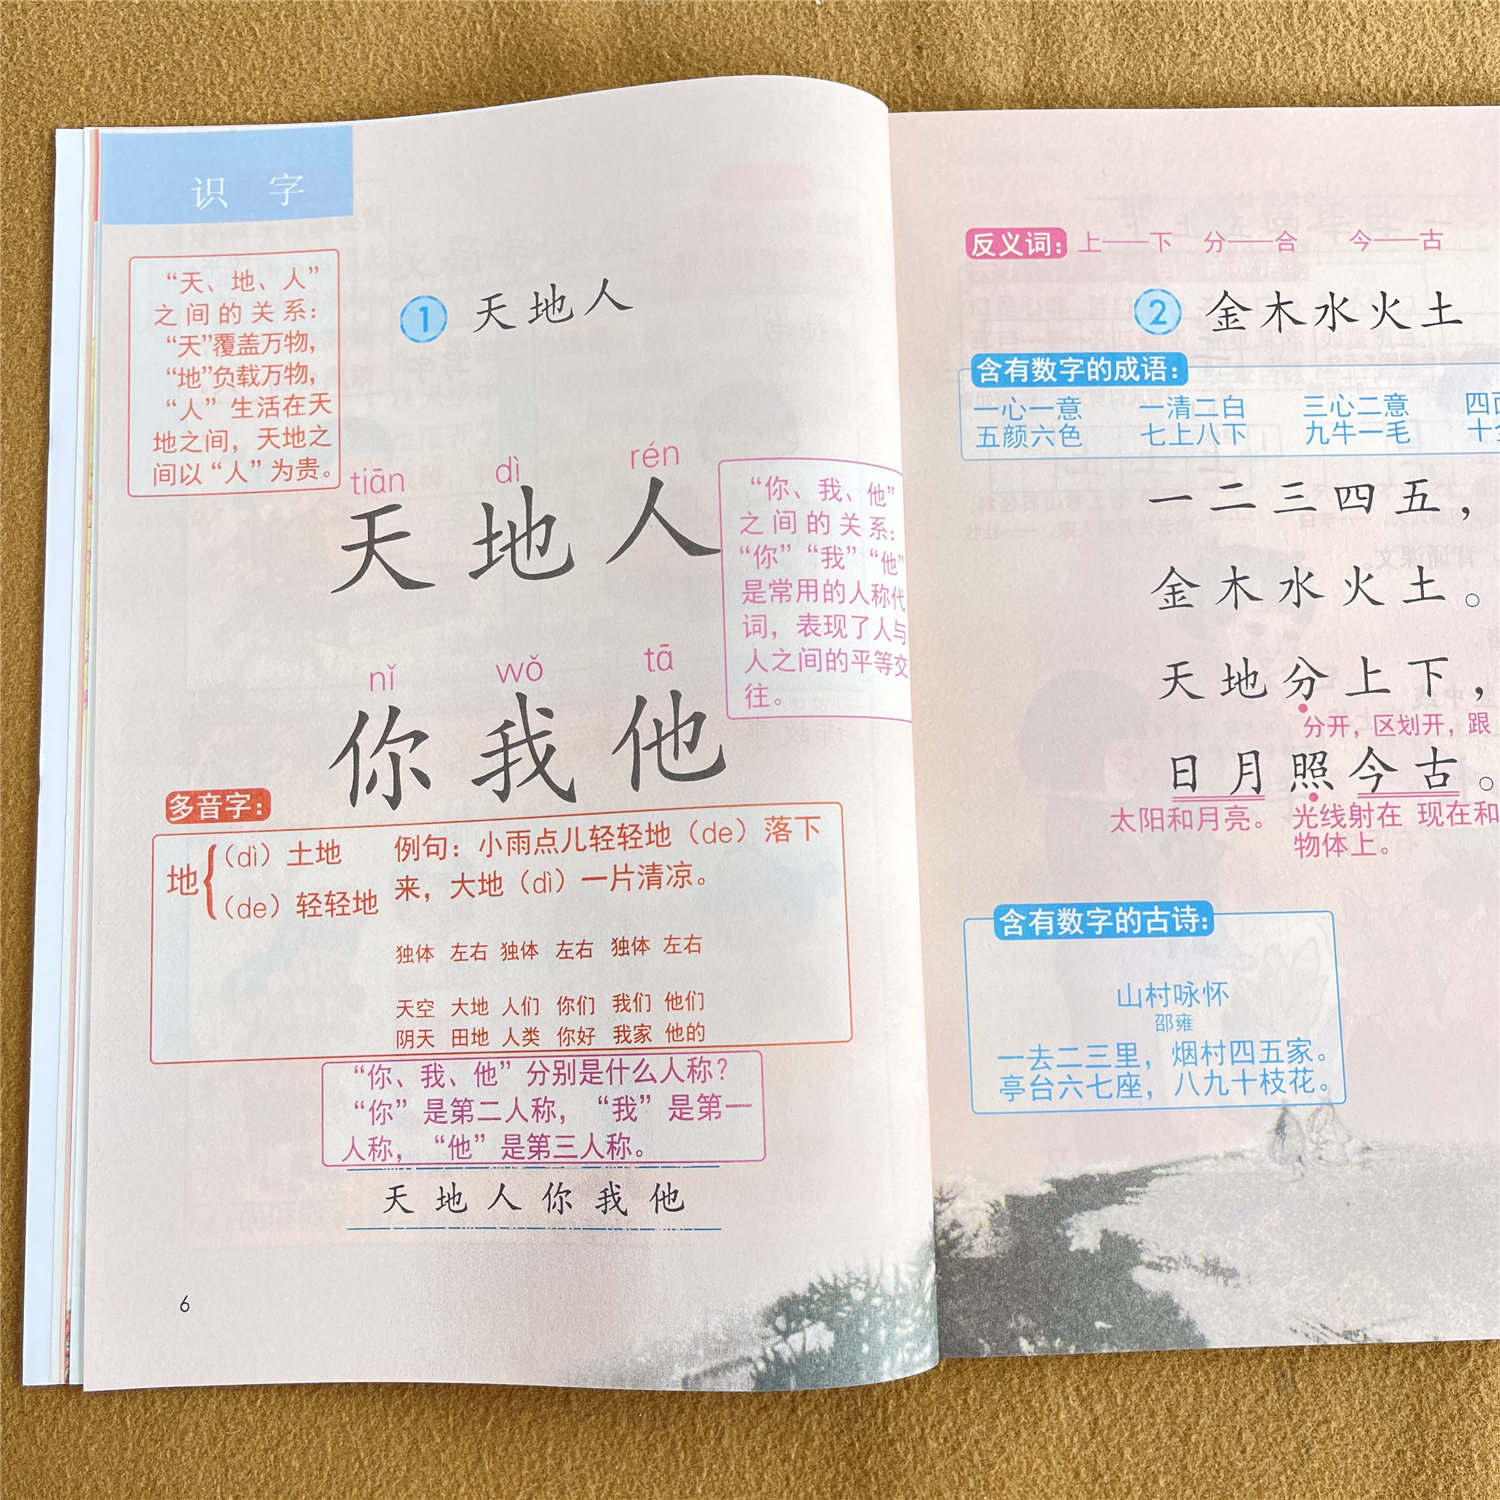 识 字
“天、地、人”
之间的关系：
“天”覆盖万物，
“地”负载万物，
“人”生活在天
地之间，天地之
间以“人”为贵。
1 天地人
tiān dì rén
天 地 人
nǐ wǒ tā
你 我 他
“你、我、他”
之间的关系：
“你”“我”“他”
是常用的人称代
词，表现了人与
人之间的平等交
往。
多音字：
地
（dì）土地
（de）轻轻地
例句：小雨点儿轻轻地（de）落下
来，大地（dì）一片清凉。
独体 左右 独体 左右 独体 左右
天空 大地 人们 你们 我们 他们
阴天 田地 人类 你好 我家 他的
“你、我、他”分别是什么人称？
“你”是第二人称，“我”是第一
人称，“他”是第三人称。
天 地 人 你 我 他
6
反义词： 上——下 分——合 今——古
2 金木水火土
含有数字的成语：
一心一意 一清二白 三心二意 四
五颜六色 七上八下 九牛一毛 十
一二三四五，
金木水火土。
天地分上下，
分开，区划开，跟
日月照今古。
太阳和月亮。 光线射在 现在和
物体上。
含有数字的古诗：
山村咏怀
邵雍
一去二三里，烟村四五家。
亭台六七座，八九十枝花。